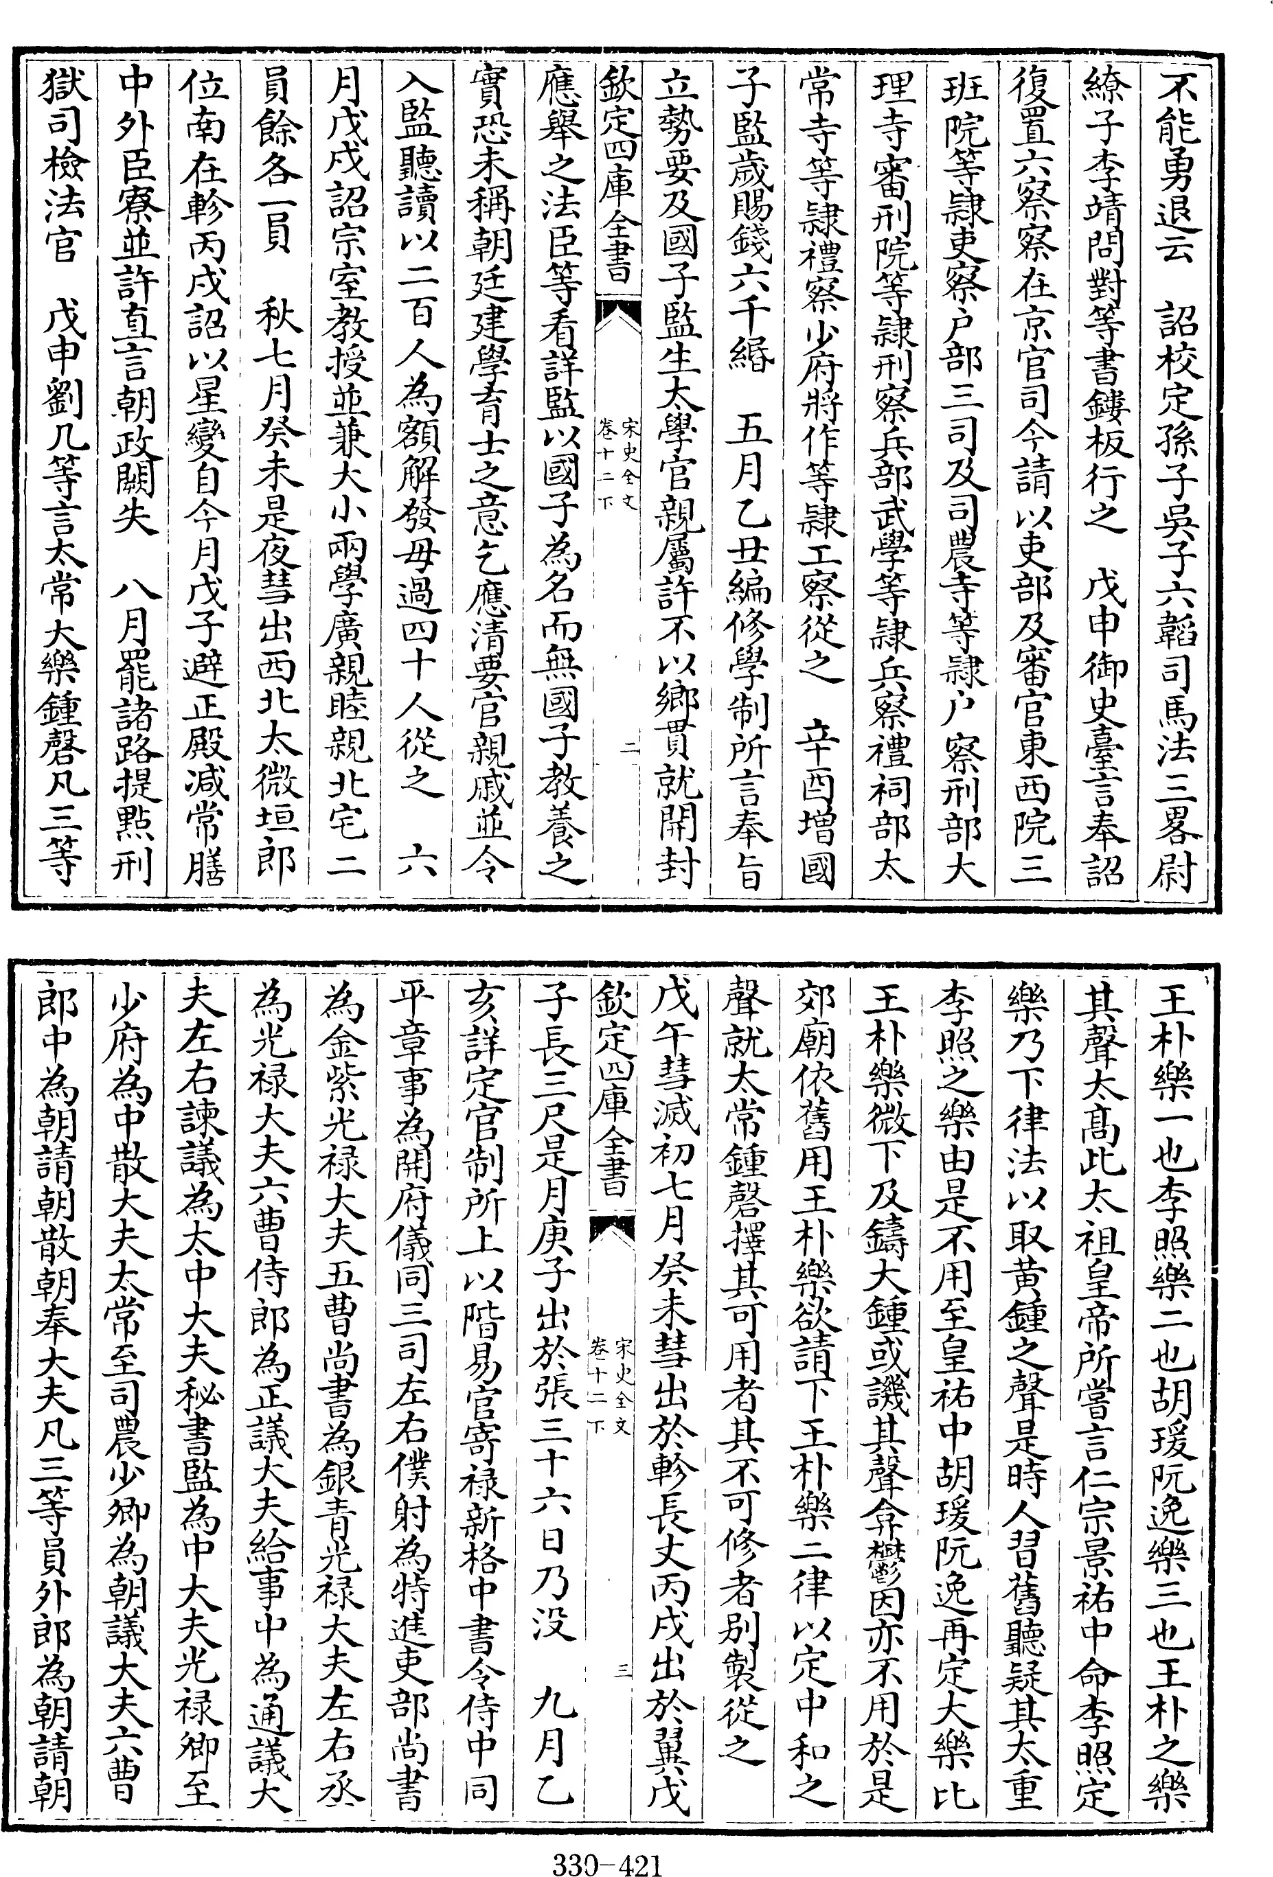 不能勇退云　詔校定孫子吳子六韜司馬法三畧尉
繚子李靖問對等書鏤板行之　戊申御史臺言奉詔
復置六察察在京官司今請以吏部及審官東西院三
班院等隷吏察戶部三司及司農寺等隷戶察刑部大
理寺審刑院等隷刑察兵部武學等隷兵察禮祠部太
常寺等隷禮察少府將作等隷工察從之　辛酉增國
子監歳賜錢六千緡　五月乙丑編修學制所言奉旨
立勢要及國子監生太學官親屬許不以鄉貫就開封
欽定四庫全書
宋史全文
卷十二下
二
應舉之法臣等看詳監以國子為名而無國子教養之
實恐未稱朝廷建學育士之意乞應清要官親戚並令
入監聽讀以二百人為額解發毋過四十人從之　六
月戊戌詔宗室教授並兼大小兩學廣親睦親北宅二
員餘各一員　秋七月癸未是夜彗出西北太微垣郎
位南在軫丙戌詔以星變自今月戊子避正殿減常膳
中外臣寮並許直言朝政闕失　八月罷諸路提點刑
獄司檢法官　戊申劉几等言太常大樂鍾磬凡三等
王朴樂一也李照樂二也胡瑗阮逸樂三也王朴之樂
其聲太髙此太祖皇帝所嘗言仁宗景祐中命李照定
樂乃下律法以取黃鍾之聲是時人習舊聽疑其太重
李照之樂由是不用至皇祐中胡瑗阮逸再定大樂比
王朴樂微下及鑄大鍾或譏其聲弇鬱因亦不用於是
郊廟依舊用王朴樂欲請下王朴樂二律以定中和之
聲就太常鍾磬擇其可用者其不可修者别製從之
戊午彗滅初七月癸未彗出於軫長丈丙戌出於翼戊
欽定四庫全書
宋史全文
卷十二下
三
子長三尺是月庚子出於張三十六日乃没　九月乙
亥詳定官制所上以階易官寄禄新格中書令侍中同
平章事為開府儀同三司左右僕射為特進吏部尚書
為金紫光禄大夫五曹尚書為銀青光禄大夫左右丞
為光禄大夫六曹侍郎為正議大夫給事中為通議大
夫左右諫議為太中大夫秘書監為中大夫光禄卿至
少府為中散大夫太常至司農少卿為朝議大夫六曹
郎中為朝請朝散朝奉大夫凡三等員外郎為朝請朝
330-421